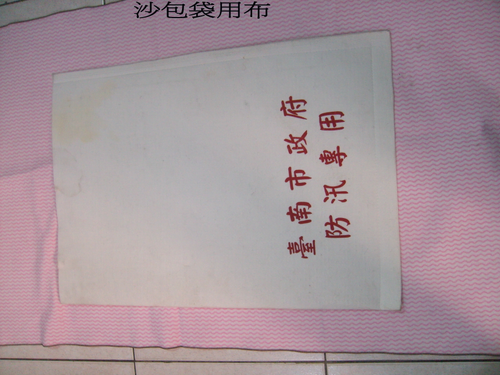 沙包袋用布
臺南市政府
防汛專用